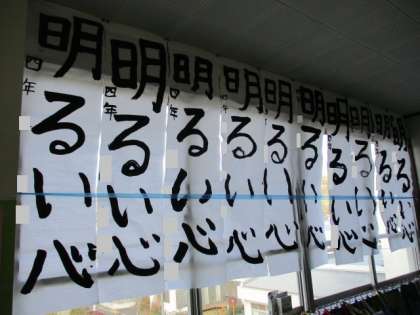 明るい心
四年
明るい心
四年
明るい心
四年
明るい心
明るい心
明るい心
明るい心
明るい心
明るい心
明るい心